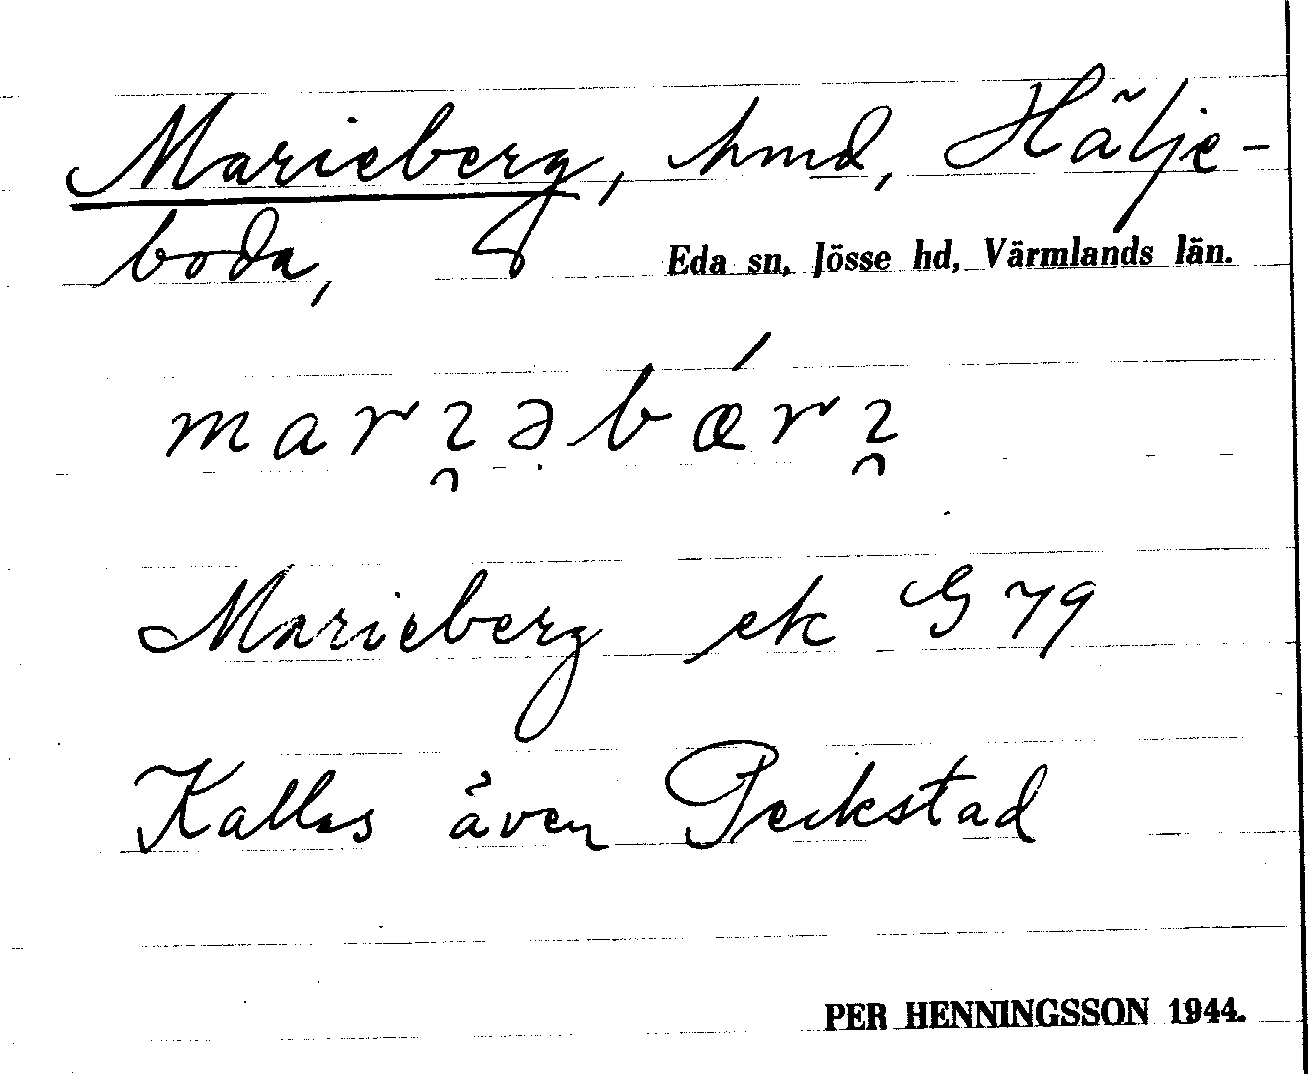 Marieberg, hmd, Hälje-
boda,
Eda sn, Jösse hd, Värmlands län.
Marieberg ek G 79
Kallas även Peckstad
PER HENNINGSSON 1944.